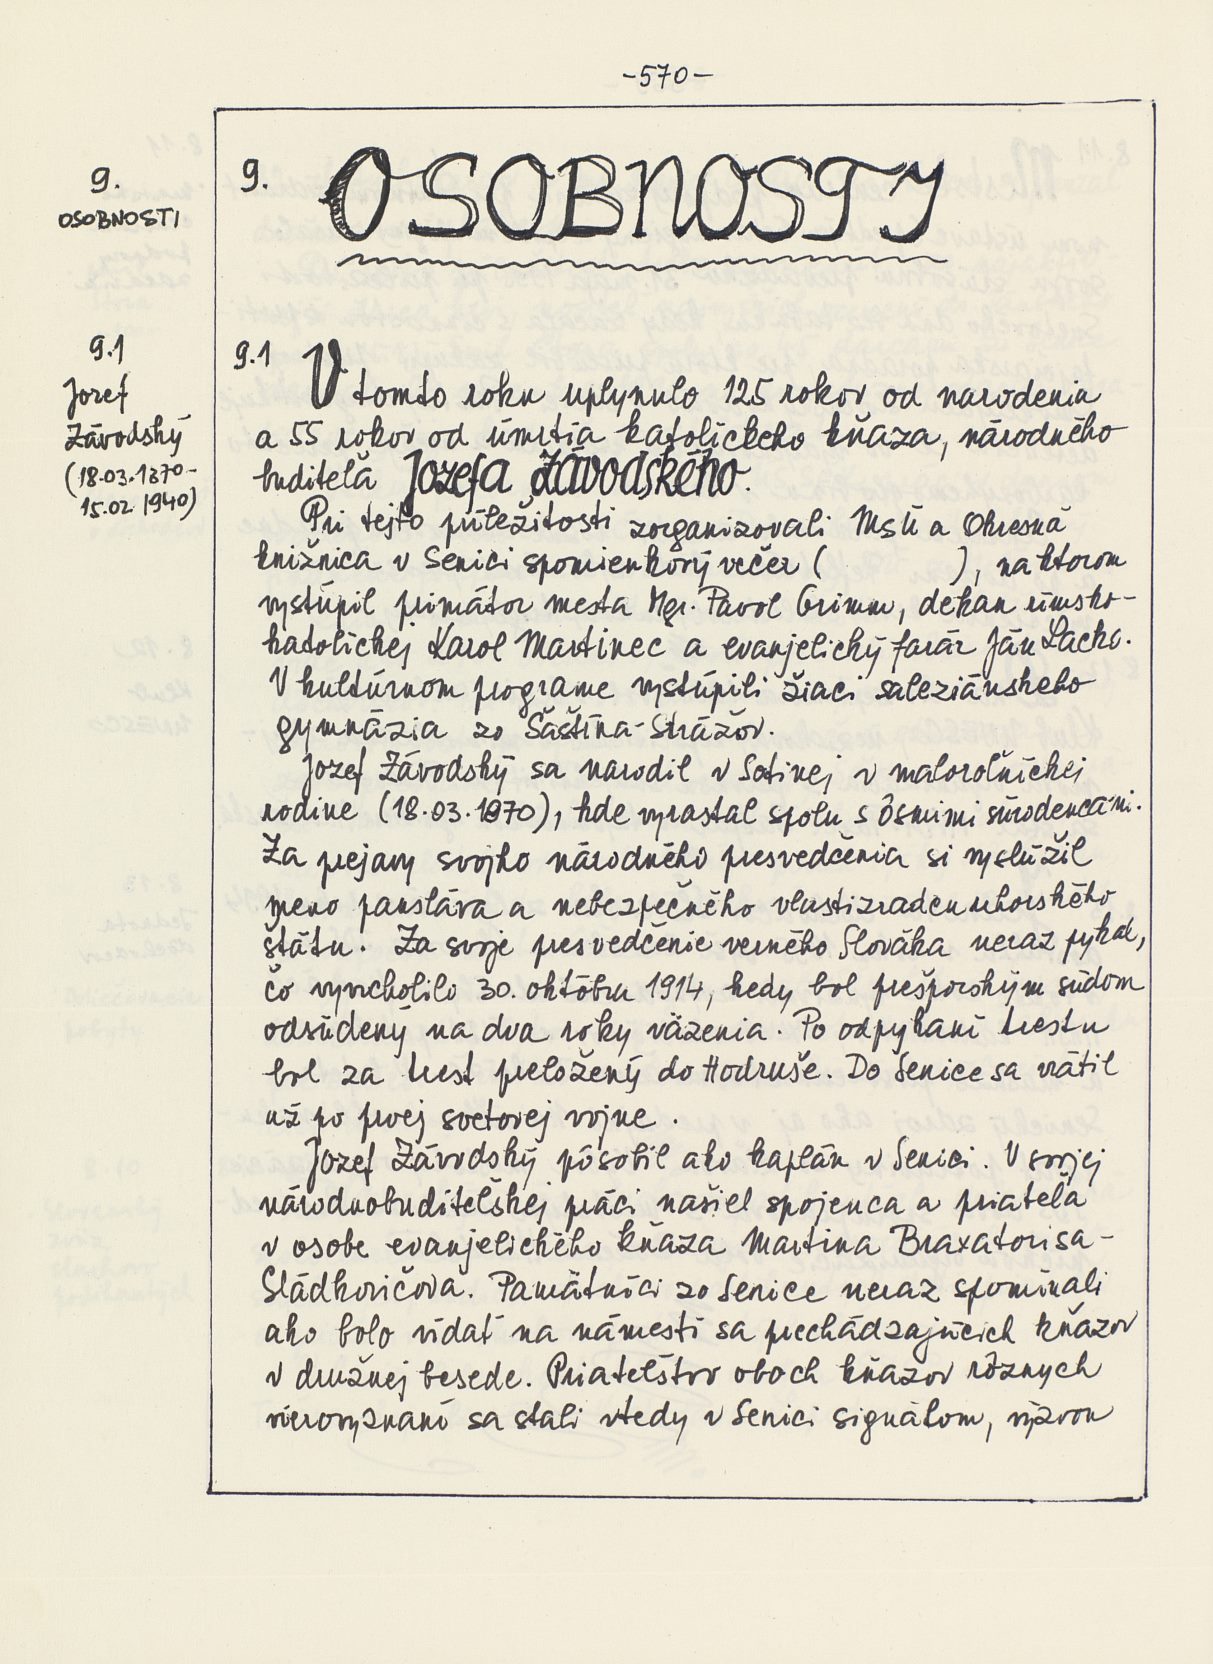 -570-
9.
OSOBNOSTI
9. OSOBNOSTI
9.1
Jozef
Závodský
(18.03.1870-
15.02.1940)
9.1 V tomto roku uplynulo 125 rokov od narodenia
a 55 rokov od úmrtia katolíckeho kňaza, národného
buditeľa Jozefa Závodského.
Pri tejto príležitosti zorganizovali MsÚ a Okresná
knižnica v Senici spomienkový večer ( ), na ktorom
vystúpil primátor mesta Mgr. Pavol Grimm, dekan rímsko-
katolíckej Karol Martinec a evanjelický farár Ján Lacko.
V kultúrnom programe vystúpili žiaci saleziánskeho
gymnázia zo Šaštína-Stráží.
Jozef Závodský sa narodil v Sotinej v maloroľníckej
rodine (18.03.1870), kde vyrastal spolu s ôsmimi súrodencami.
Za prejavy svojho národného presvedčenia si vyslúžil
meno panslávа a nebezpečného vlastizradcu uhorského
štátu. Za svoje presvedčenie verného Slováka neraz pykal,
čo vyvrcholilo 30. októbru 1914, kedy bol prešporským súdom
odsúdený na dva roky väzenia. Po odpykaní trestu
bol za trest preložený do Hodruše. Do Senice sa vrátil
už po prvej svetovej vojne.
Jozef Závodský pôsobil ako kaplán v Senici. V svojej
národnobuditeľskej práci našiel spojenca a priateľa
v osobe evanjelického kňaza Martina Braxatorisa-
Sládkovičova. Pamätníci zo Senice neraz spomínali
ako bolo vídať na námestí sa prechádzajúcich kňazov
v družnej besede. Priateľstvo oboch kňazov rôznych
vierovyznaní sa stali vtedy v Senici signálom, výzvou